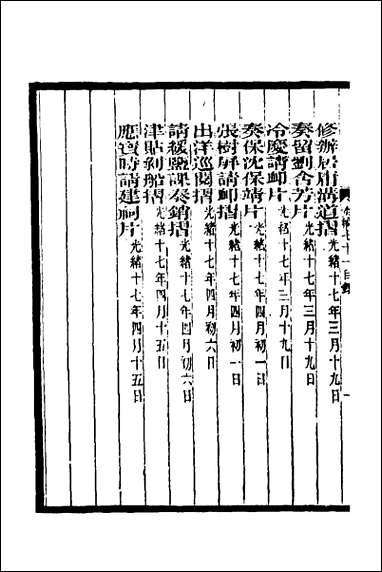 修辦居庸溝道摺光緒十七年三月十九日
奏留劉含芳片光緒十七年三月十九日
冷慶請卹片光緒十七年三月十九日
奏保沈保靖片光緒十七年四月初一日
張樹屏請卹摺光緒十七年四月初一日
出洋巡閱摺光緒十七年四月初六日
請緩鹽課奏銷摺光緒十七年四月初六日
津貼剝船摺光緒十七年四月十五日
應寶時請建祠片光緒十七年四月十五日